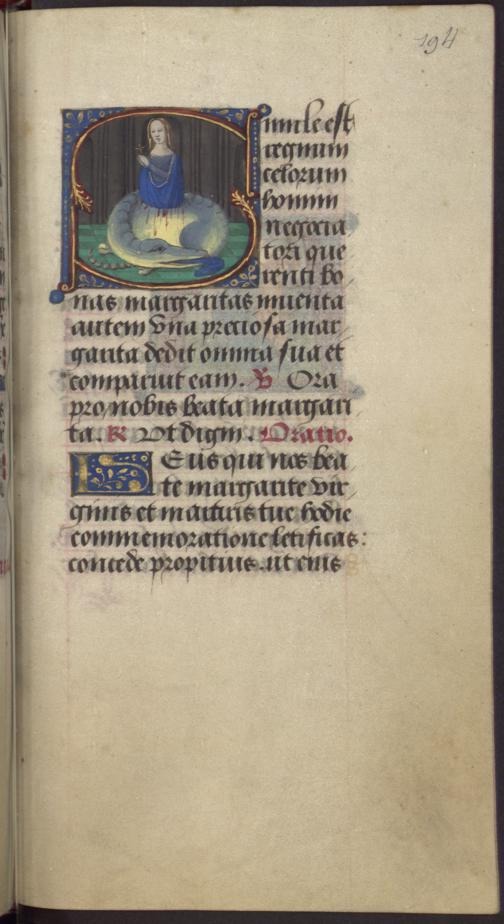 194
Simile est
regnum
celorum
homini
negocia
tori que
renti bo
nas margaritas inuenta
autem vna preciosa mar
garita dedit omnia sua et
comparuit eam. V Ora
pro nobis beata margari
ta. R Vt digni. Oratio.
Deus qui nos bea
te margarite vir
ginis et martiris tue hodie
commemoratione letificas:
concede propitius. ut eius